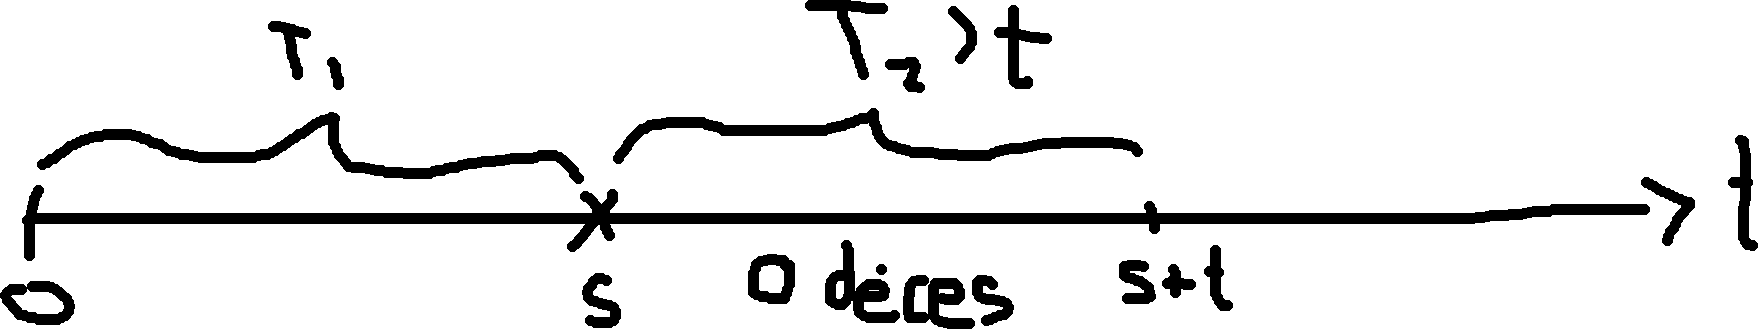 T₁ T₂ > t
t
0 s 0 décès s+t